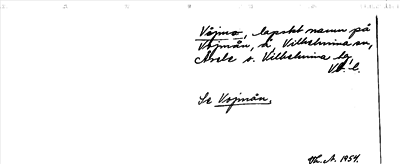 Våjmo, lapskt namn på
Vojmån, å, Vilhelmina sn,
Åsele o. Vilhelmina tg,
Vb. l.
Se Vojmån.
Vh. A. 1954.